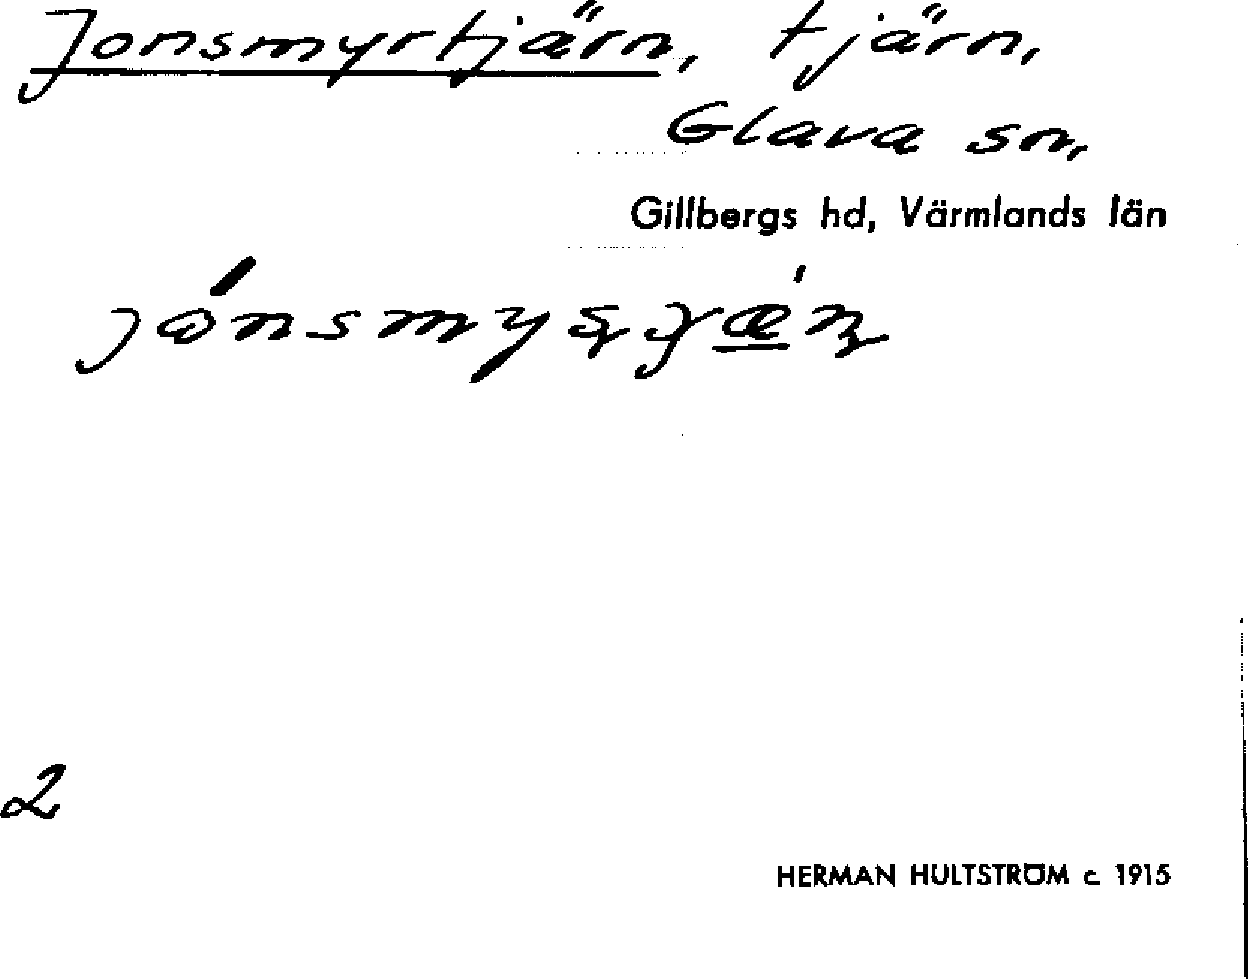 Jonsmyrtjärn, tjärn,
Glava sn,
Gillbergs hd, Värmlands län
2
HERMAN HULTSTRÖM c. 1915